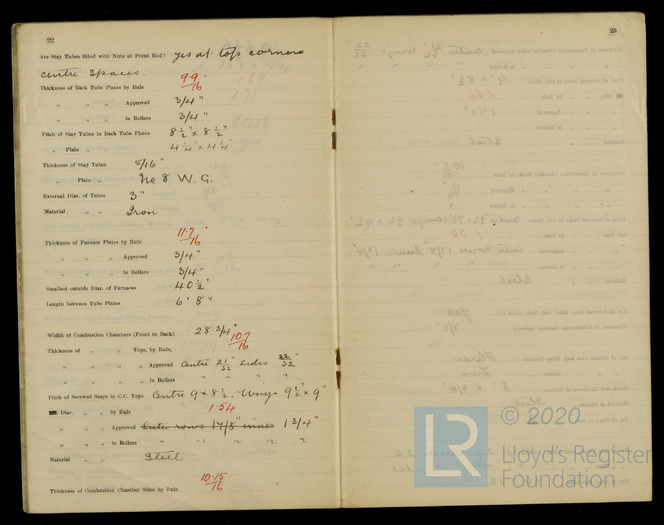 22
Are Stay Tubes fitted with Nuts at Front End? yes at top corners
centre spaces.
Thickness of Back Tube Plates by Rule 9.9/16
" " " Approved 3/4"
" " " in Boilers 3/4"
Pitch of Stay Tubes in Back Tube Plates 8 1/2" x 8 1/2"
" Plain " 4 1/4" x 4 1/4"
Thickness of Stay Tubes 5/16"
" Plain " No 8 W.G.
External Diar. of Tubes 3"
Material " " Iron
Thickness of Furnace Plates by Rule 11.7/16
" " " Approved 3/4"
" " " in Boilers 3/4"
Smallest outside Diar. of Furnaces 40 1/2"
Length between Tube Plates 6' 8"
Width of Combustion Chambers (Front to Back) 28 3/4"
Thickness of " " Tops, by Rule, 10.7/16
" " " " Approved Centre 21/32 Sides 22/32"
" " " " in Boilers " " " "
Pitch of Screwed Stays in C.C. Tops Centre 9 x 8 1/2. Wings 9 1/2" x 9"
Diar. " " by Rule 1.54
" " " Approved 1 3/4"
" " " in Boilers " " " " "
Material " " Steel
Thickness of Combustion Chamber Sides by Rule 10.15/16
23
© 2020
LR
Lloyd's Register
Foundation